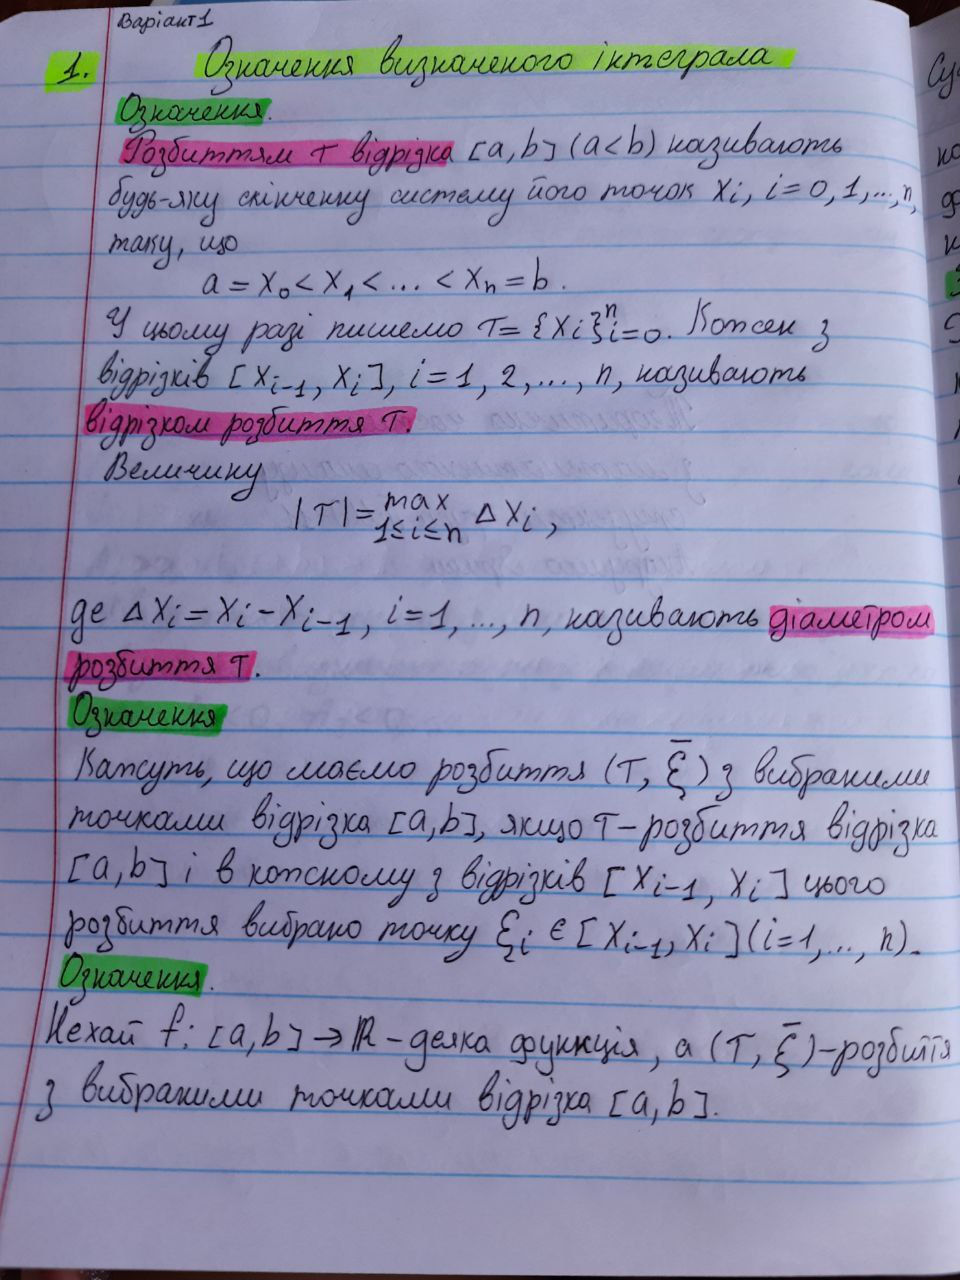 Варіант 1
1. Означення визначеного інтеграла
Означення.
Розбиттям T відрізка [a, b] (a < b) називають
будь-яку скінченну систему його точок xᵢ, i = 0, 1, ..., n,
таку, що
a = x₀ < x₁ < ... < xₙ = b.
У цьому разі пишемо T = {xᵢ}ⁿᵢ₌₀. Кожен з
відрізків [xᵢ₋₁, xᵢ], i = 1, 2, ..., n, називають
відрізком розбиття T.
Величину
|T| = max Δxᵢ,
1≤i≤n
де Δxᵢ = xᵢ − xᵢ₋₁, i = 1, ..., n, називають діаметром
розбиття T.
Означення
Кажуть, що маємо розбиття (T, ξ̄) з вибраними
точками відрізка [a, b], якщо T – розбиття відрізка
[a, b] і в кожному з відрізків [xᵢ₋₁, xᵢ] цього
розбиття вибрано точку ξᵢ ∈ [xᵢ₋₁, xᵢ] (i = 1, ..., n).
Означення.
Нехай f: [a, b] → ℝ – деяка функція, а (T, ξ̄) – розбиття
з вибраними точками відрізка [a, b].